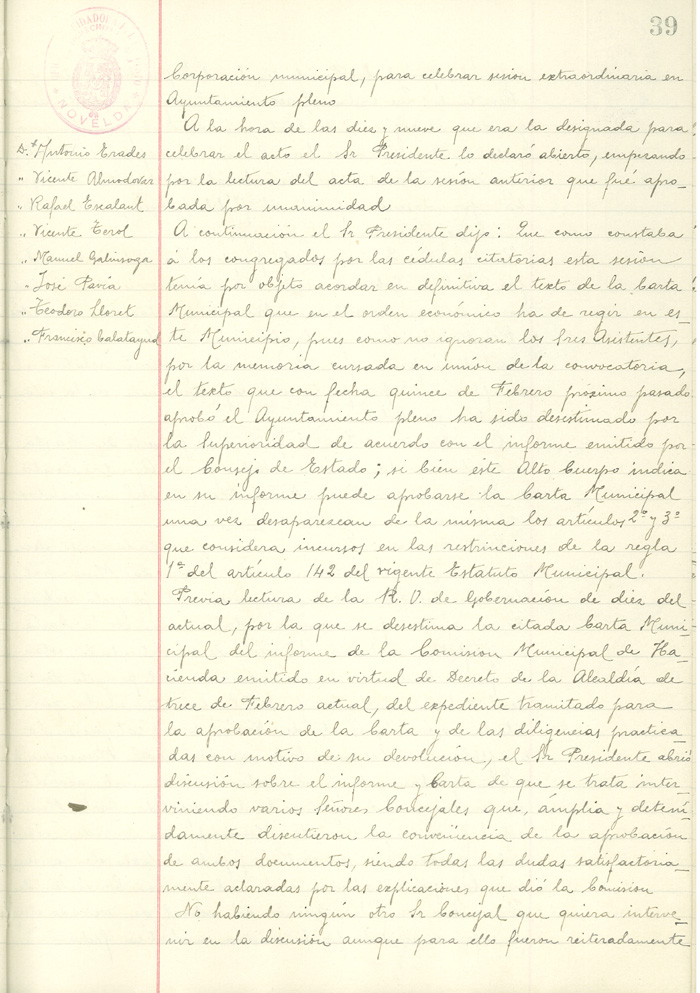 39
NOVELDA
Corporación municipal, para celebrar sesion extraordinaria en
Ayuntamiento pleno
A la hora de las diez y nueve que era la designada para
celebrar el acto el Sr Presidente lo declaró abierto, empezando
por la lectura del acta de la sesión anterior que fué apro-
bada por unanimidad
A continuación el Sr Presidente dijo: Que como constaba
á los congregados por las cédulas citatorias esta sesión
tenía por objeto acordar en definitiva el texto de la Carta
Municipal que en el orden económico ha de regir en es-
te Municipio, pues como no ignoran los Sres Asistentes,
por la memoria cursada en unión de la convocatoria,
el texto que con fecha quince de Febrero próximo pasado
aprobó el Ayuntamiento pleno ha sido desestimado por
la Superioridad de acuerdo con el informe emitido por
el Consejo de Estado; si bien este Alto Cuerpo indica
en su informe puede aprobarse la Carta Municipal
una vez desaparezcan de la misma los artículos 2º y 3º
que considera incursos en las restrinciones de la regla
1ª del artículo 142 del vigente Estatuto Municipal.
Previa lectura de la R. O. de Gobernación de diez del
actual, por la que se desestima la citada Carta Muni-
cipal del informe de la Comision Municipal de Ha-
cienda emitido en virtud de Decreto de la Alcaldía de
trece de Febrero actual, del expediente tramitado para
la aprobación de la Carta y de las diligencias practica-
das con motivo de su devolución, el Sr Presidente abrió
discusión sobre el informe y Carta de que se trata inter-
viniendo varios Señores Concejales que, ámplia y deteni-
damente discutieron la conveniencia de la aprobación
de ambos documentos, siendo todas las dudas satisfactoria-
mente aclaradas por las explicaciones que dió la Comisión
No habiendo ningún otro Sr Concejal que quiera interve-
nir en la discusión aunque para ello fueron reiteradamente
D. Antonio Erades
" Vicente Almodovar
" Rafael Escalant
" Vicente Terol
" Manuel Galinsoga
" José Pavía
" Teodoro Lloret
" Francisco Calatayud